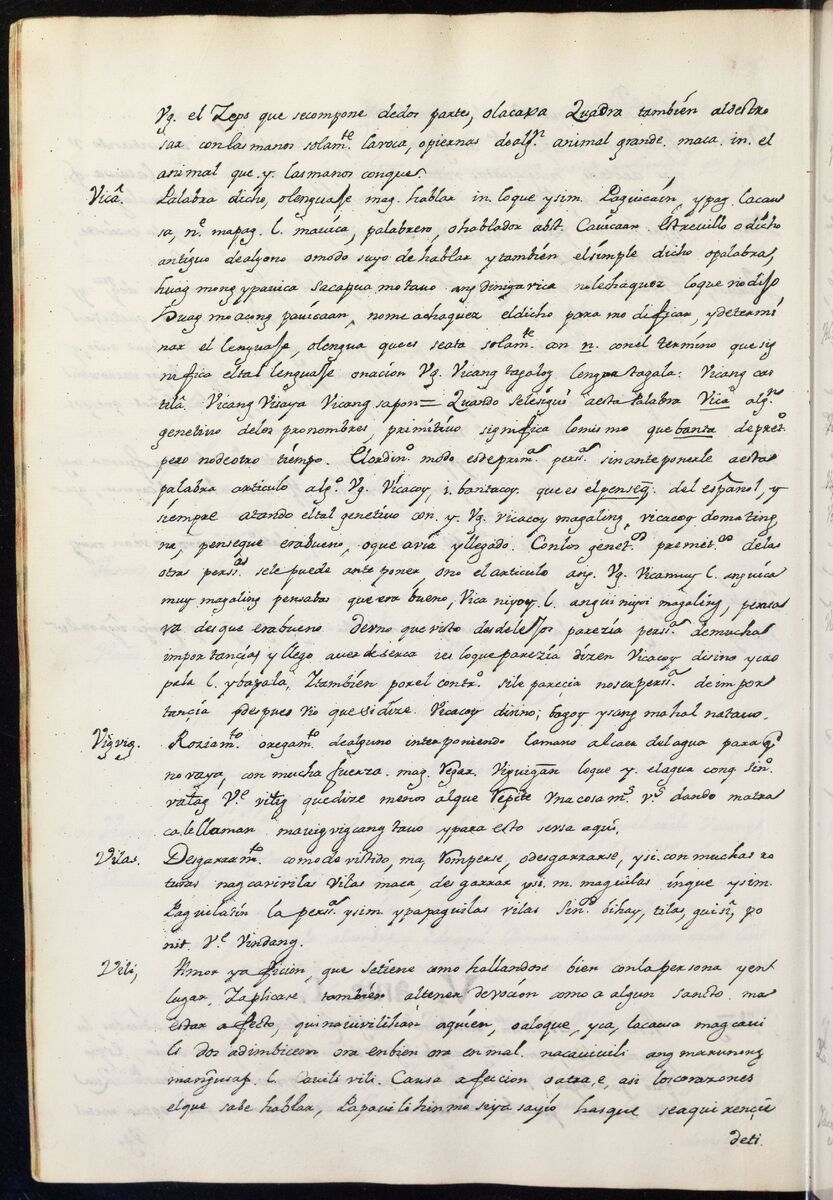 Vg. el Zepo que secompone dedos partes, olacaxa Quadra también aldestro
sar con las manos solam.te la roca, opiernas dealg.n animal grande. maca. in. el
animal que. y. las manos conque.
Vicâ. Palabra dicho, olenguaje mag. hablar in. loque ysim. Paguicain, ypag. lacau
sa, n.o mapag. l. mauica, palabrero, ohablador abst. Cauicaan. Estrevillo o dicho
antiguo dealgono omodo suyo de hablar y también elsimple dicho opalabra,
huag mong ypauica sa capua mo tauo ang denigauica nolechaquez loque nodijo
Huag mo acong pauicaan, nome achaquez eldicho para modificar, ydetermi
nar el lenguaje, olengua quees seata solam.te con n. conel termino que sig
nifica eltal lenguaje onacion Vg. Vicang tagalog lengua tagala. Vicang cas
tilâ. Vicang Visaya Vicang sapon = Quando selesigui aesta Palabra Vicâ alg.no
genetivo delos pronombres, primitivo significa lomismo que banta depret.o
pero nodeotro tiempo. Elordin.o modo esdeprim.a pers.a sin anteponerle aesta
palabra articulo alg.o Vg. Vicacoy, i. bantacoy. que es el penseq. del español, y
siempre atando eltal genetivo con. y. Vg. vicacoy magaling, vicacoy domating
na, pense que erabueno, oque avia yllegado. Conlos genet.os premit.os delas
otras pers.as sele puede anteponer, ono el articulo ang. Vg. Vicamuy l. anguica
muy magaling pensabas que era bueno, Vica niyoy. l. angüi niyoi magaling, pensa
va desque erabueno. deuno que visto desdelejos parezia pers.a demucha
importancia, y llego aver de serca ies loque parezia dizen Vicacoy disino ycao
pala l. ybapalà, Y también porel contr.o sile parecia noserpers.a deimpor
tancia ydespues vio que si dize. Vicacoy dirino; bagoy ysang mahal natauo.
Vigvig. Roziam.to oregam.to dealguno interponiendo lamano al caer del agua para q.e
novaya, con mucha fuerza. mag. Vegar. Viguigan loque y. el agua conq. Sin.o
vatag V.e vitig quedize menos alque Vepite Vna cosa m.s v.s dando matra
ca lellaman mauigvigcang tauo ypara esto sersa aqui.
Vilas. Desgarram.to como de vistido, ma, Vomperse, odesgarrarse, ysi. con muchas ro
turas nagcavivilas Vilas maca, desgarrar ysi. m. maguilas inque ysim.
Paguilasin la pers.a ysim. ypapaguilas vilas Sin.o bihay, tilas, guisi, po
nit. V.e Vindang.
Vili, Amor ya ficion, que setiene como hallandose bien conlapersona yen
lugar, Y aplicase también altener devocion como a algun santo. ma
estar afecto, quinauivilihan aquien, oaloque, yca, lacausa magcaui
li dos adimbicem ora enbien ora en mal. nacauivili ang marunong
mangusap. l. Cauili vili. Causa aficion oatrae, asi loscorazones
el que sabe hablar, Papauilihin mo siya sayo has que sea quirencie
deti.